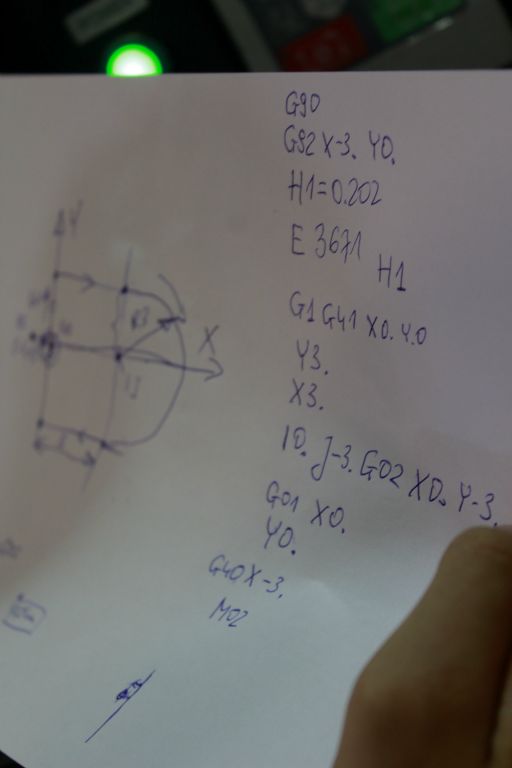 G90
G92 X-3. Y0.
H1=0.202
E 3671 H1
G1 G41 X0. Y.0
Y3.
X3.
I0. J-3. G02 X0. Y-3.
G01 X0.
Y0.
G40 X-3.
M02
Y
X